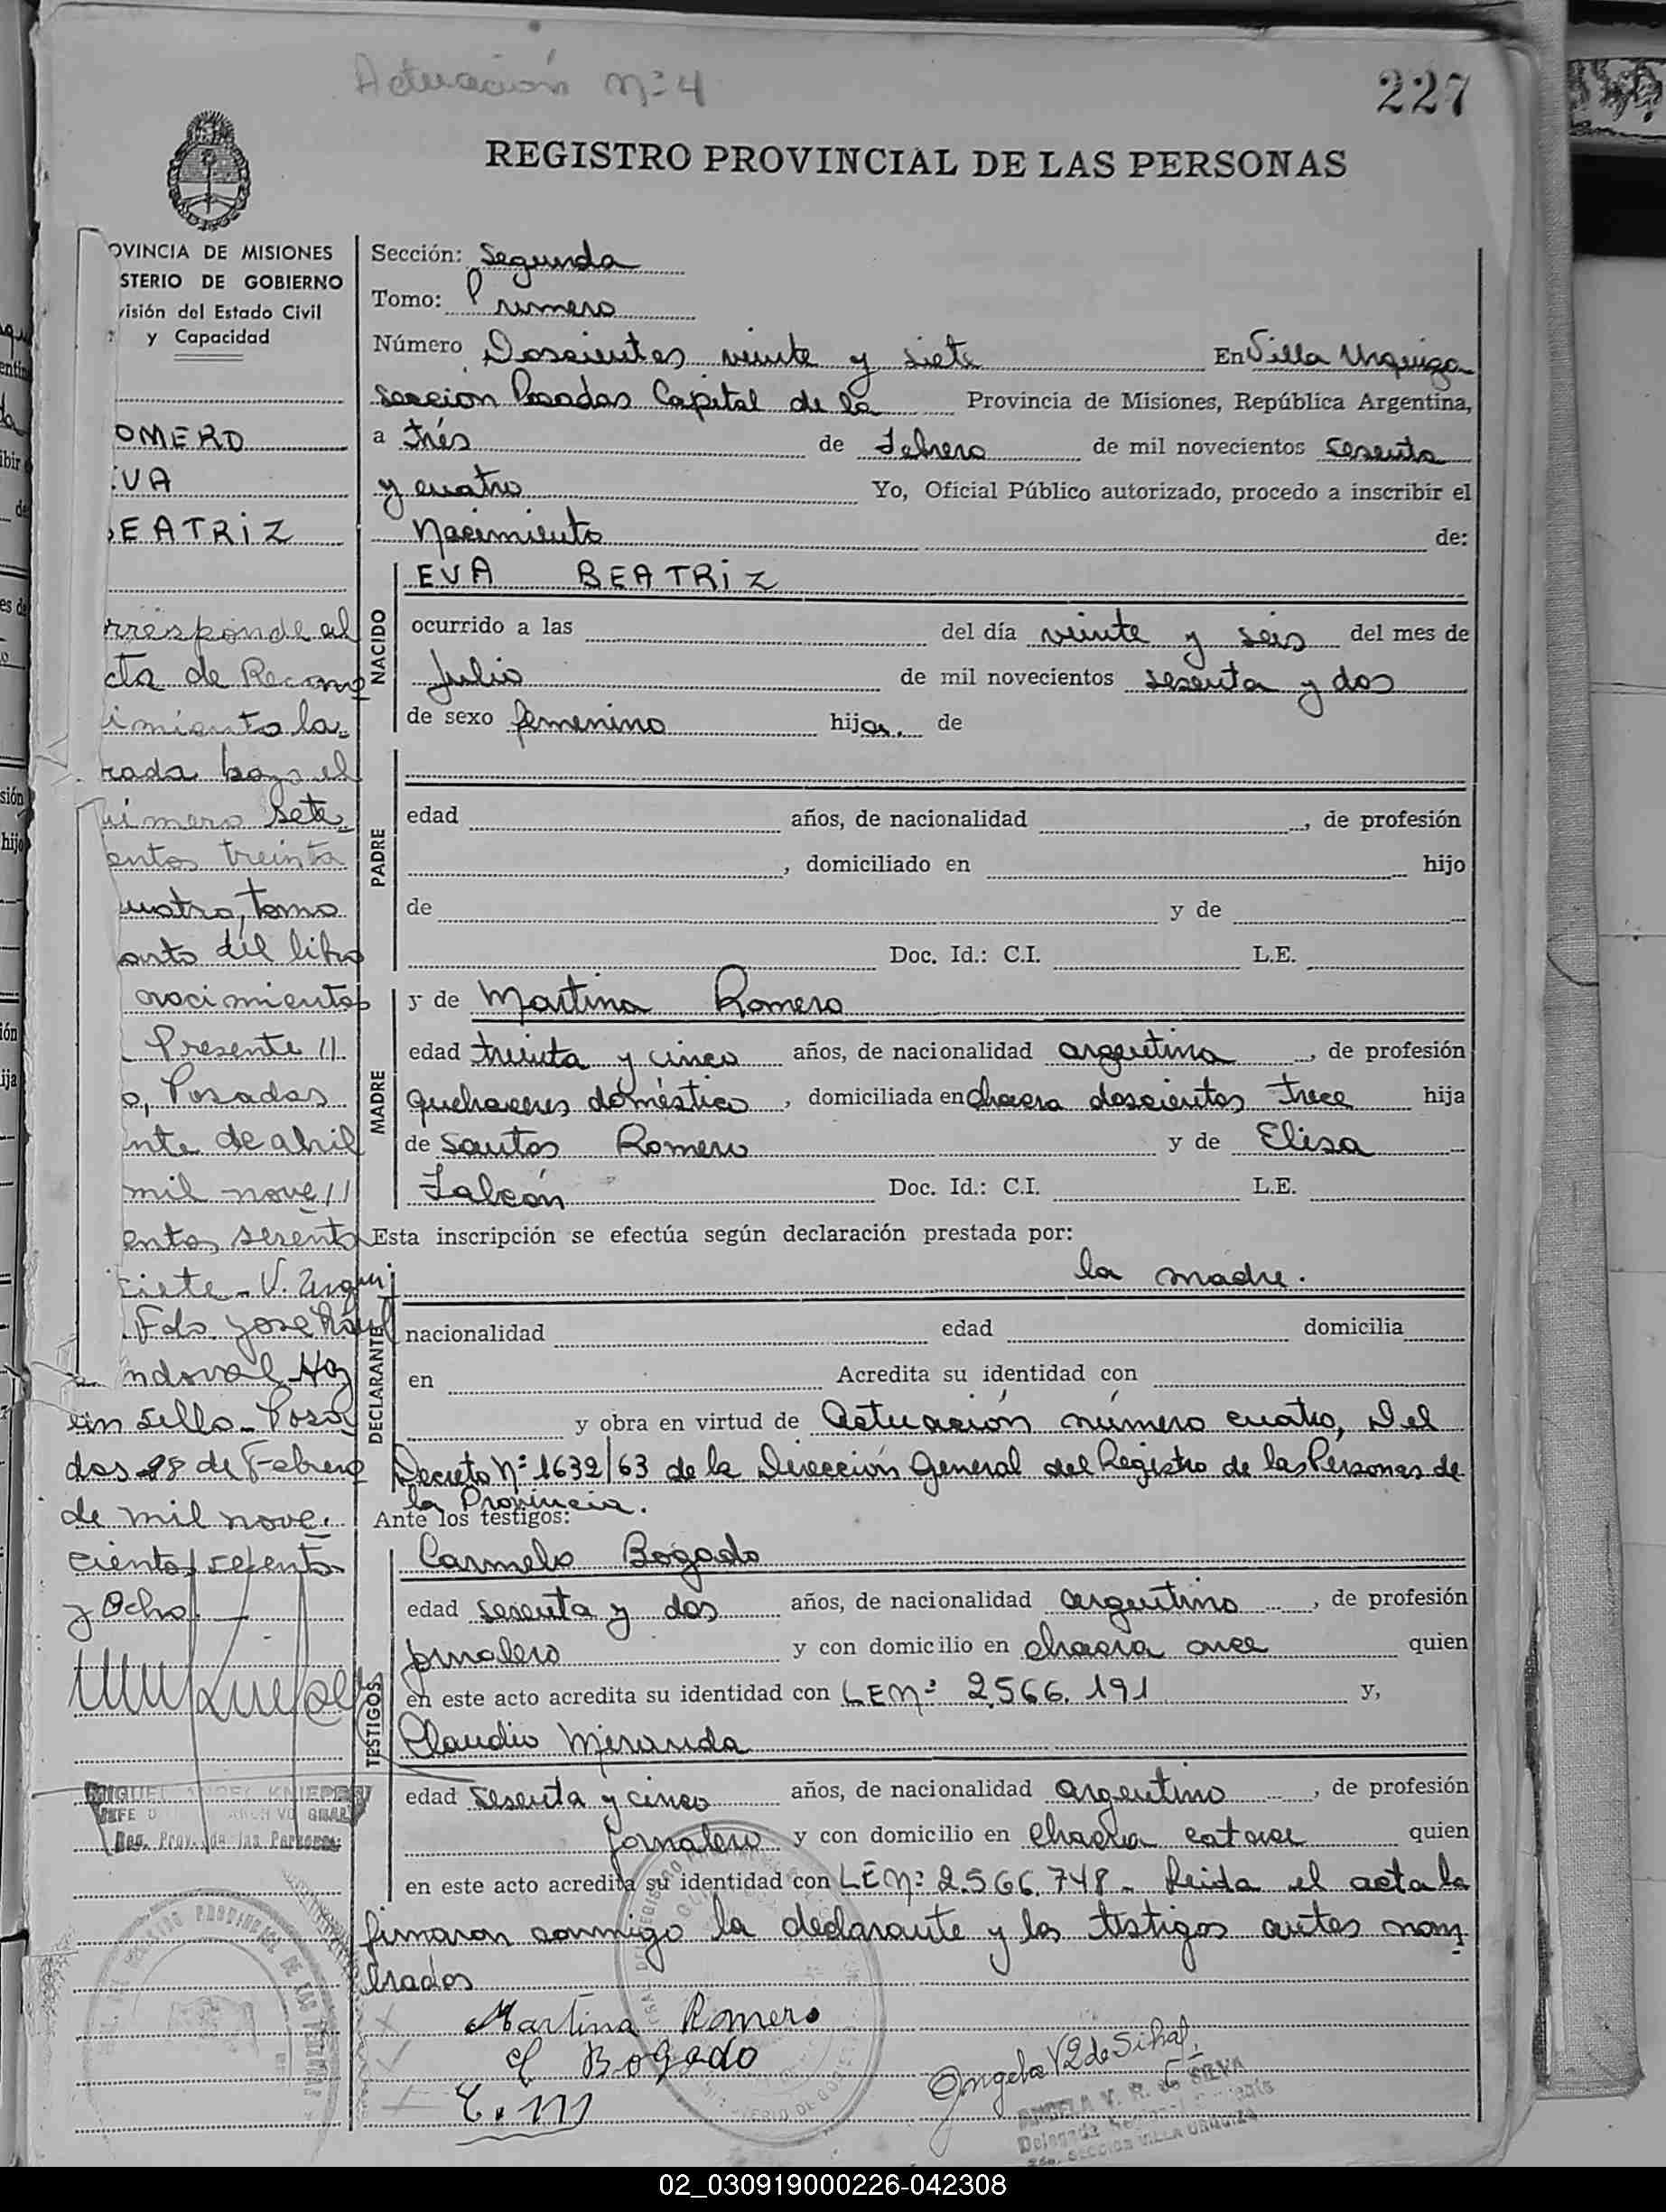 Actuación nº 4
227
REGISTRO PROVINCIAL DE LAS PERSONAS
OVINCIA DE MISIONES
STERIO DE GOBIERNO
visión del Estado Civil
y Capacidad
OMERO
VA
EATRIZ
rresponde al
cta de Recono
imiento la-
rada bajo el
úmero sete
entos treinta
uatro, tomo
arto del libro
nocimientos
Presente //
o, Posadas
nte de abril
mil nove //
entos sesenta
siete - V. Urqui
Fdo. José Raúl
ndoval Hay
un sello - Posa
das 28 de Febrero
de mil nove.
cientos sesenta
y Ocho.
MIGUEL ANGEL
JEFE
Reg. Prov. de las Personas
Sección: Segunda
Tomo: Primero
Número Doscientos veinte y siete En Villa Urquiza
Sección Posadas Capital de la Provincia de Misiones, República Argentina,
a trés de Febrero de mil novecientos sesenta
y cuatro Yo, Oficial Público autorizado, procedo a inscribir el
Nacimiento de:
NACIDO
EVA BEATRIZ
ocurrido a las del día veinte y seis del mes de
Julio de mil novecientos sesenta y dos
de sexo femenino hija. de
PADRE
edad años, de nacionalidad , de profesión
, domiciliado en hijo
de y de
Doc. Id.: C.I. L.E.
MADRE
y de Martina Romero
edad treinta y cinco años, de nacionalidad argentina , de profesión
quehaceres doméstico , domiciliada en chacra doscientos trece hija
de Santos Romero y de Elisa
Falcón Doc. Id.: C.I. L.E.
Esta inscripción se efectúa según declaración prestada por:
la madre.
DECLARANTE
nacionalidad edad domicilia
en Acredita su identidad con
y obra en virtud de Actuación número cuatro, Del
Decreto Nº 1632/63 de la Dirección General del Registro de las Personas de
la Provincia.
Ante los testigos:
TESTIGOS
Carmelo Bogado
edad sesenta y dos años, de nacionalidad argentino , de profesión
jornalero y con domicilio en chacra once quien
en este acto acredita su identidad con LE Nº 2.566.191 y,
Claudio Miranda
edad sesenta y cinco años, de nacionalidad argentino , de profesión
jornalero y con domicilio en chacra catorce quien
en este acto acredita su identidad con LE Nº 2.566.748 - Leida el acta la
firmaron conmigo la declarante y los testigos antes nom
brados
Martina Romero
C Bogado
C. m
ANGELA V. R. de SILVA
SECCION VILLA URQUIZA
REGISTRO PROVINCIAL DE LAS PERSONAS
02_030919000226-042308